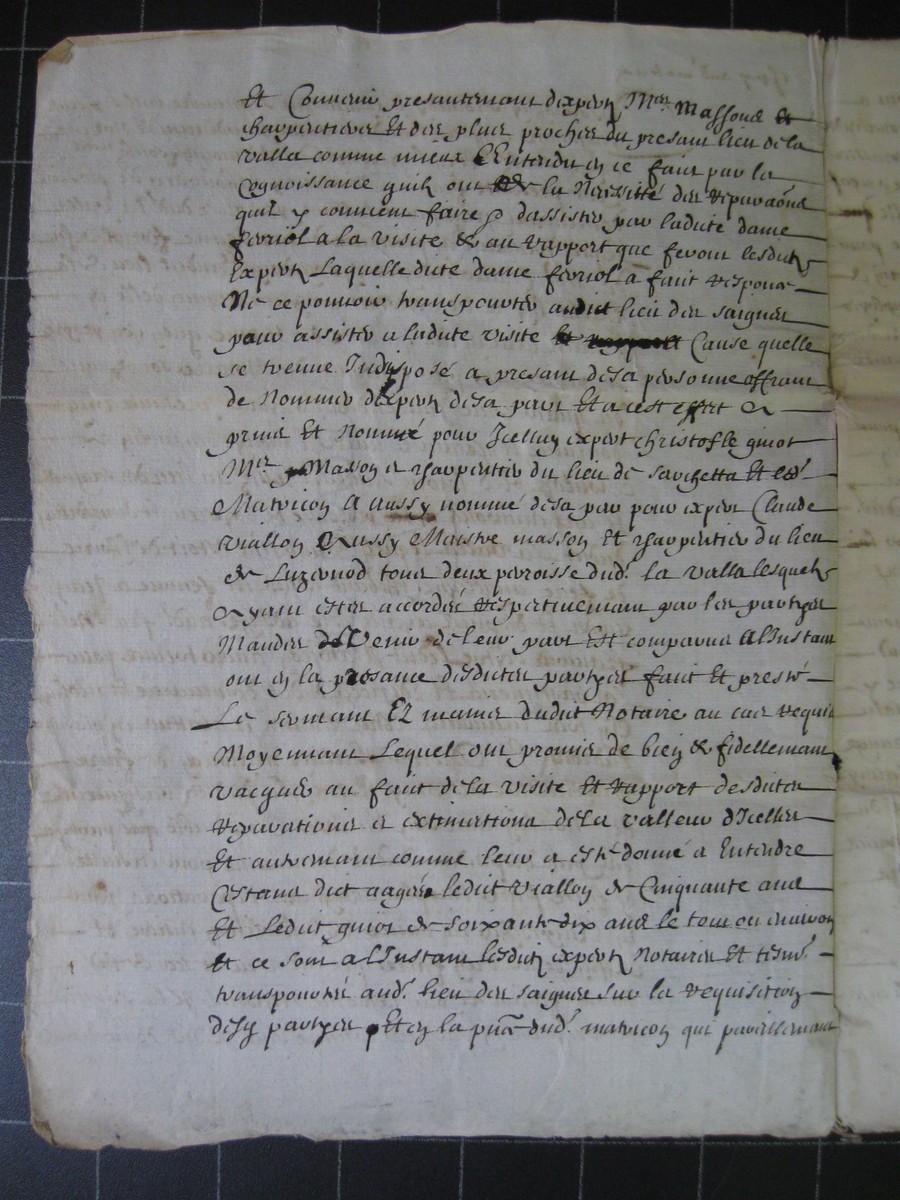 Et Convenir presantemant d'expertz Mes Massons et
charpentiers Et des plus proches du presant lieu de la
valla comme mieux Entendu en ce fait par la
Cognoissance quilz ont de la Necessité des reparaons
quil y convient faire & dassister par ladite dame
feriol a la visite & au rapport que feront lesditz
Expertz Laquelle dicte dame feriol a fait responce
Ne ce pouvoir transpourter audit lieu des saignes
pour assister a ladite visite Cause quelle
se treuve Indisposé a presant de sa personne offrant
de Nommer dexpertz de sa part Et a cest effect a
prins Et Nommé pour Icelluy expert christofle guiot
Me Masson & charpentier du lieu de sarchetta Et led.
Matricon A aussy nommé de sa par pour expert Claude
viallon Aussy Maistre masson Et charpentier du lieu
de Luzernod tous deux parroisse dud. la valla lesquelz
ayant estes accordés respectivemant par les partyes
Mandes de Venir de leur part Est comparus A l'Instant
ont en la presance desdictes partyes fait Et presté
Le sermant Ez mains dudit Notaire au cas requis
Moyennant Lequel ont promis de bien & fidellemant
vacquer au fait de la visite Et rapport desdites
reparations & extimations de la valleur d'Icelles
Et autremant comme leur a esté donné a Entendre
Cestans dict aagés ledict viallon de Cinquante ans
Et Ledict guiot de soixante dix ans le tout ou environ
Et ce sont a l'Instant lesditz expertz Notaire Et tesm.
transpourtés aud. lieu des saignes sur la requisition
desd partyes Et en la pnce dud. matricon qui pareillemant